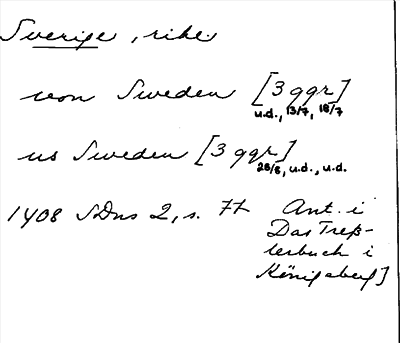 Sverige, rike
von Sweden [3 ggr]
u.d., 13/7, 18/7
us Sweden [3 ggr]
28/8, u.d., u.d.
1408 SDns 2, s. 77 Ant. i
Das Treß-
lerbuch i
Königsberg]